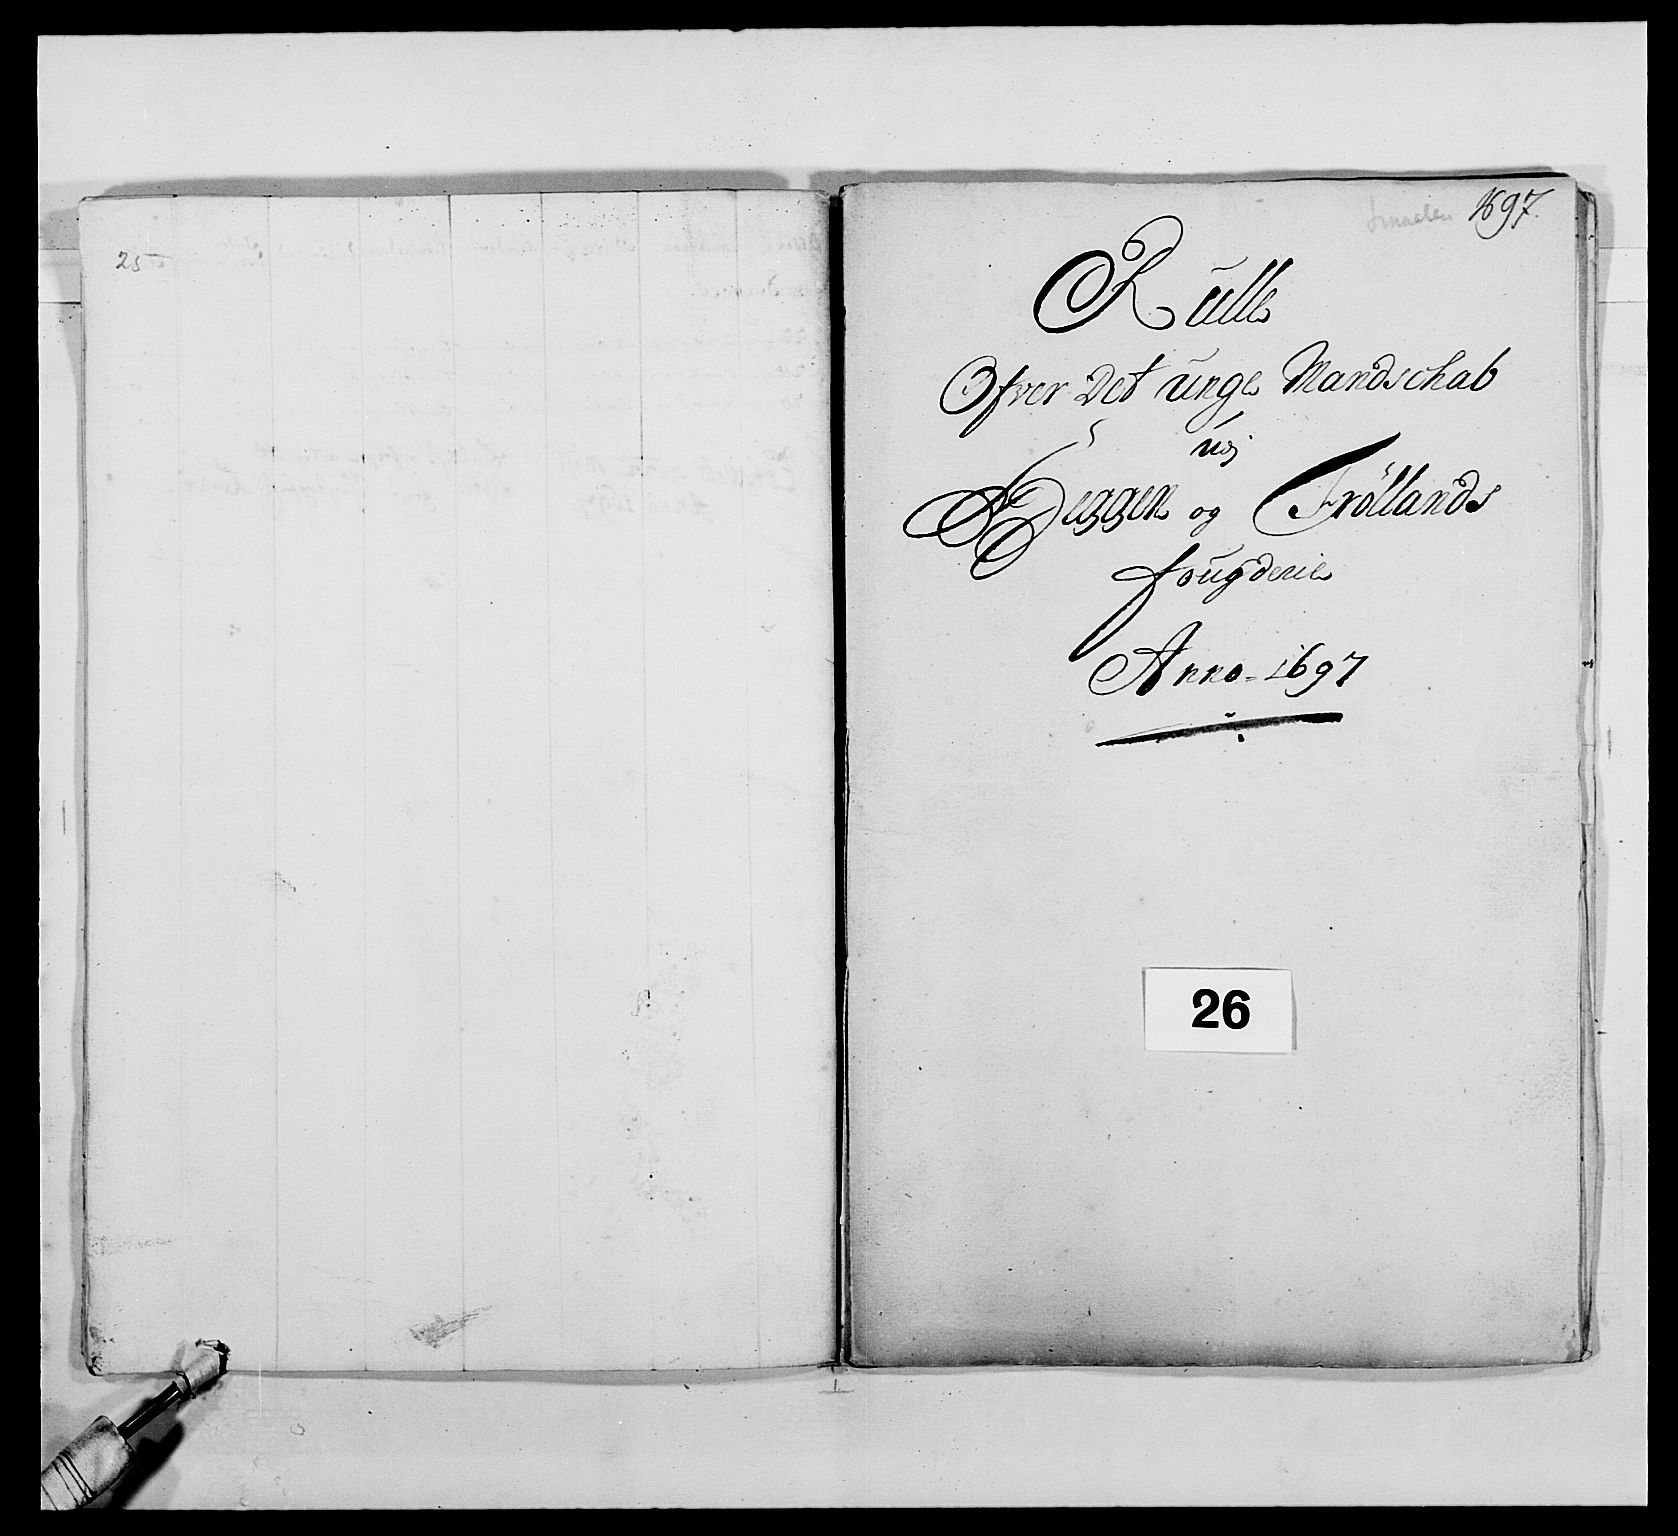 25
1697
Smaalen
Rulle
Ofver Det unge Mandschab
udj
Heggen og Frøllands
fougderie
Anno 1697
26